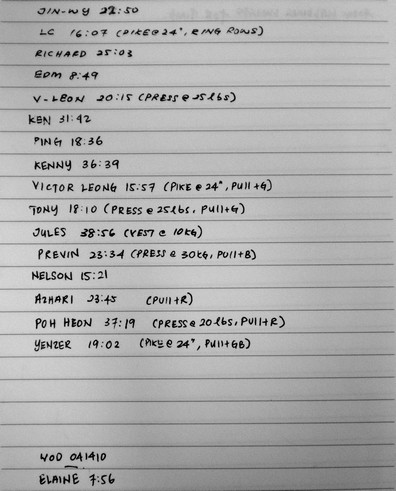 JIN-WY 22:50
LC 16:07 (PIKE @ 24", RING ROWS)
RICHARD 25:03
EDM 8:49
V-LEON 20:15 (PRESS @ 25lbs)
KEN 31:42
PING 18:36
KENNY 36:39
VICTOR LEONG 15:57 (PIKE @ 24", PUll+G)
TONY 18:10 (PRESS @ 25lbs, PUll+G)
JULES 38:56 (VEST @ 10KG)
PREVIN 23:34 (PRESS @ 30KG, PUll+B)
NELSON 15:21
AZHARI 23:45 (PUll+R)
POH HEON 37:19 (PRESS @ 20lbs, PUll+R)
YENZER 19:02 (PIKE @ 24", PUll+GB)
WOD 041410
ELAINE 7:56